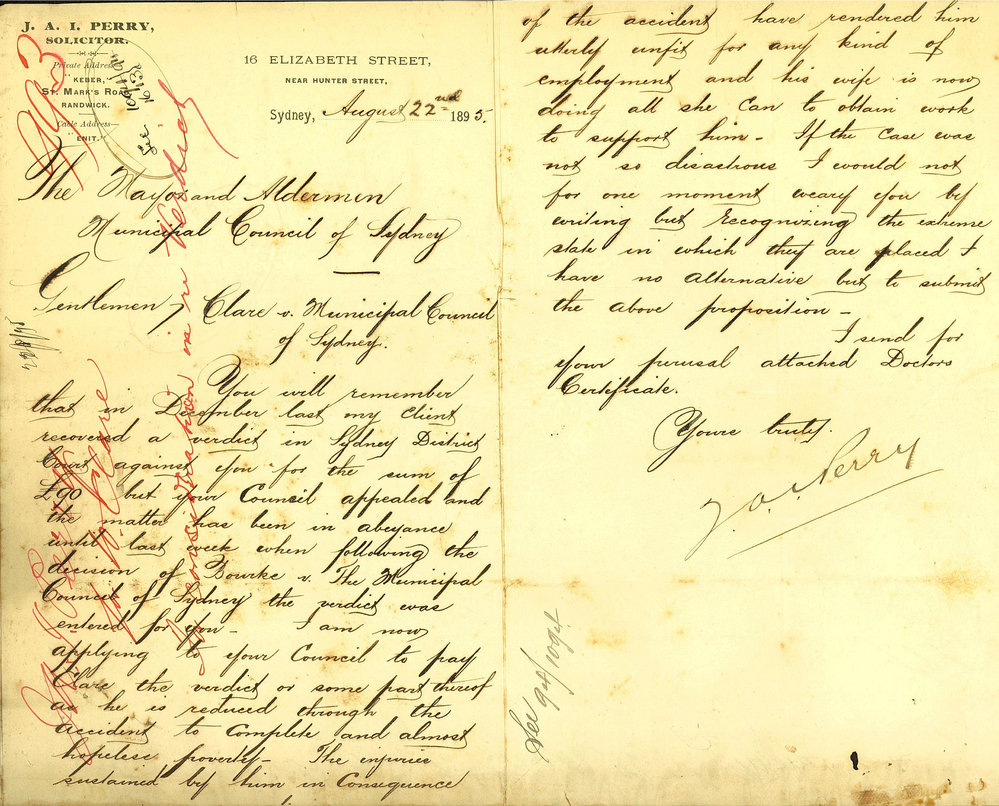 J. A. I. PERRY,
SOLICITOR.
Private Address
"KEBER,
ST. MARK'S ROAD
RANDWICK.
Cable Address
"ENIT."
16 ELIZABETH STREET,
NEAR HUNTER STREET,
Sydney, August 22nd 1895.
The Mayor and Aldermen
Municipal Council of Sydney
Gentlemen,
Clare v. Municipal Council
of Sydney.
You will remember
that in December last my client
recovered a verdict in Sydney District
Court against you for the sum of
£90 but your Council appealed and
the matter has been in abeyance
until last week when following the
decision of Bourke v. The Municipal
Council of Sydney the verdict was
entered for you - I am now
applying to your Council to pay
Clare the verdict or some part thereof
as he is reduced through the
accident to complete and almost
hopeless poverty - The injuries
sustained by him in consequence
of the accident have rendered him
utterly unfit for any kind of
employment and his wife is now
doing all she can to obtain work
to support him - If the case was
not so disastrous I would not
for one moment weary you by
writing but recognizing the extreme
state in which they are placed I
have no alternative but to submit
the above proposition -
I send for
your perusal attached Doctors
Certificate.
Yours truly.
J.A.I. Perry
See 94/1094
22/8/95
J. A. I. Perry
for W. Clare
Consideration in re Verdict
See